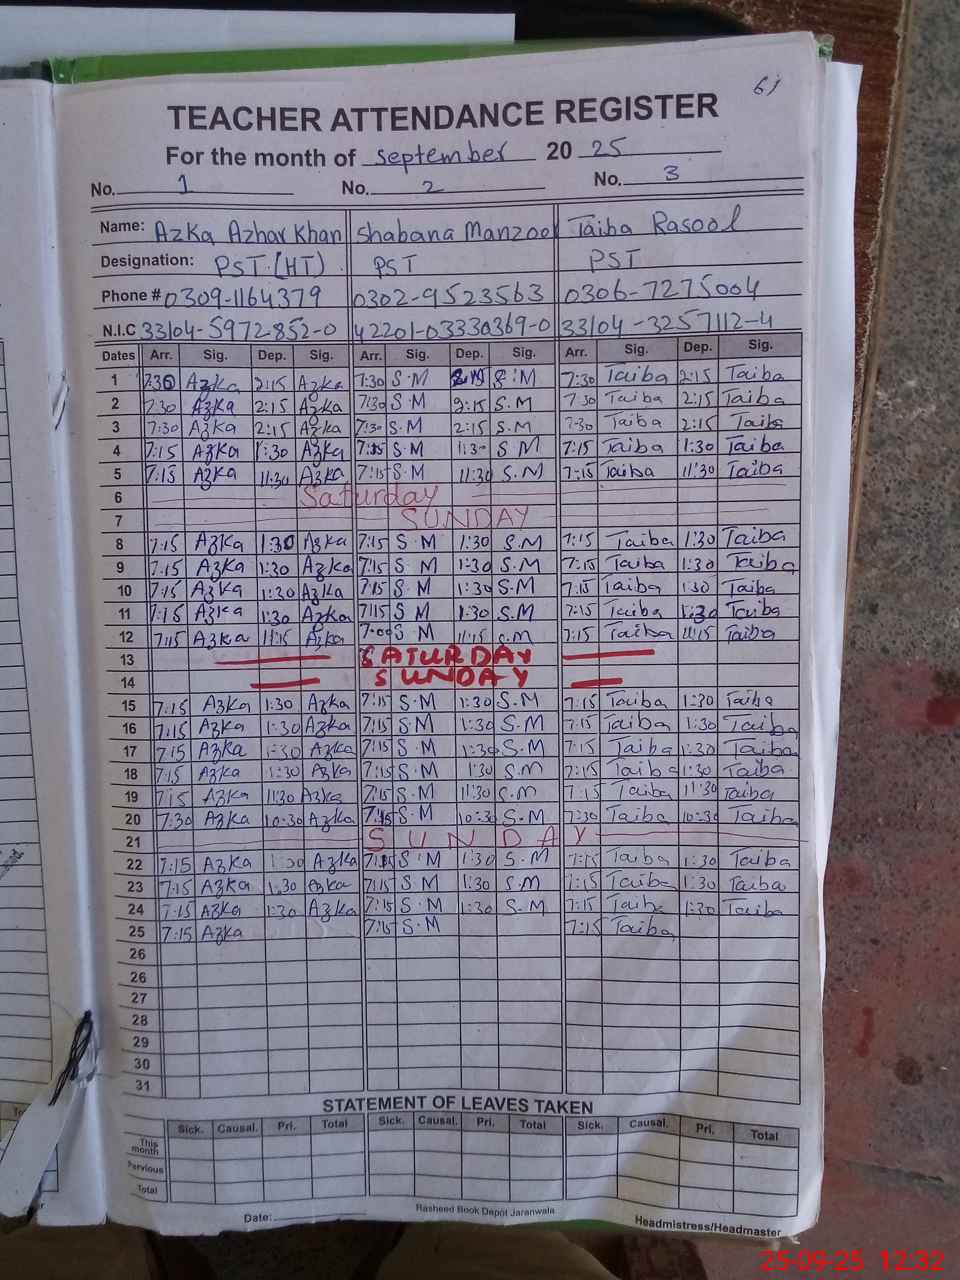 61
TEACHER ATTENDANCE REGISTER
For the month of september 20 25
No. 1 No. 2 No. 3
Name: Azka Azhar Khan Shabana Manzool Taiba Rasool
Designation: PST (HT) PST PST
Phone # 0309-1164379 0302-9523563 0306-7275004
N.I.C 33104-5972852-0 42201-03330369-0 33104-3257112-4
Dates Arr. Sig. Dep. Sig. Arr. Sig. Dep. Sig. Arr. Sig. Dep. Sig.
1 7:30 Azka 2:15 Azka 7:30 S.M 2:15 S.M 7:30 Taiba 2:15 Taiba
2 7:30 Azka 2:15 Azka 7:30 S.M 2:15 S.M 7:30 Taiba 2:15 Taiba
3 7:30 Azka 2:15 Azka 7:30 S.M 2:15 S.M 7:30 Taiba 2:15 Taiba
4 7:15 Azka 1:30 Azka 7:15 S.M 1:30 S M 7:15 Taiba 1:30 Taiba
5 7:15 Azka 11:30 Azka 7:15 S.M 11:30 S.M 7:15 Taiba 11:30 Taiba
6 Saturday
7 SUNDAY
8 7:15 Azka 1:30 Azka 7:15 S.M 1:30 S.M 7:15 Taiba 1:30 Taiba
9 7:15 Azka 1:30 Azka 7:15 S.M 1:30 S.M 7:15 Taiba 1:30 Taiba
10 7:15 Azka 1:30 Azka 7:15 S.M 1:30 S.M 7:15 Taiba 1:30 Taiba
11 7:15 Azka 1:30 Azka 7:15 S.M 1:30 S.M 7:15 Taiba 1:30 Taiba
12 7:15 Azka 11:15 Azka 7:00 S.M 11:15 S.M 7:15 Taiba 11:15 Taiba
13 SATURDAY
14 SUNDAY
15 7:15 Azka 1:30 Azka 7:15 S.M 1:30 S.M 7:15 Taiba 1:30 Taiba
16 7:15 Azka 1:30 Azka 7:15 S.M 1:30 S.M 7:15 Taiba 1:30 Taiba
17 7:15 Azka 1:30 Azka 7:15 S.M 1:30 S.M 7:15 Taiba 1:30 Taiba
18 7:15 Azka 1:30 Azka 7:15 S.M 1:30 S.M 7:15 Taiba 1:30 Taiba
19 7:15 Azka 11:30 Azka 7:15 S.M 11:30 S.M 7:15 Taiba 11:30 Taiba
20 7:30 Azka 10:30 Azka 7:15 S.M 10:30 S.M 7:30 Taiba 10:30 Taiba
21 SUNDAY
22 7:15 Azka 1:30 Azka 7:15 S.M 1:30 S.M 7:15 Taiba 1:30 Taiba
23 7:15 Azka 1:30 Azka 7:15 S.M 1:30 S.M 7:15 Taiba 1:30 Taiba
24 7:15 Azka 1:30 Azka 7:15 S.M 1:30 S.M 7:15 Taiba 1:30 Taiba
25 7:15 Azka 7:15 S.M 7:15 Taiba
26
26
27
28
29
30
31
STATEMENT OF LEAVES TAKEN
Sick. Causal. Pri. Total Sick. Causal. Pri. Total Sick. Causal. Pri. Total
This month
Pervious
Total
Date:
Rasheed Book Depot Jaranwala
Headmistress/Headmaster
25-09-25 12:32